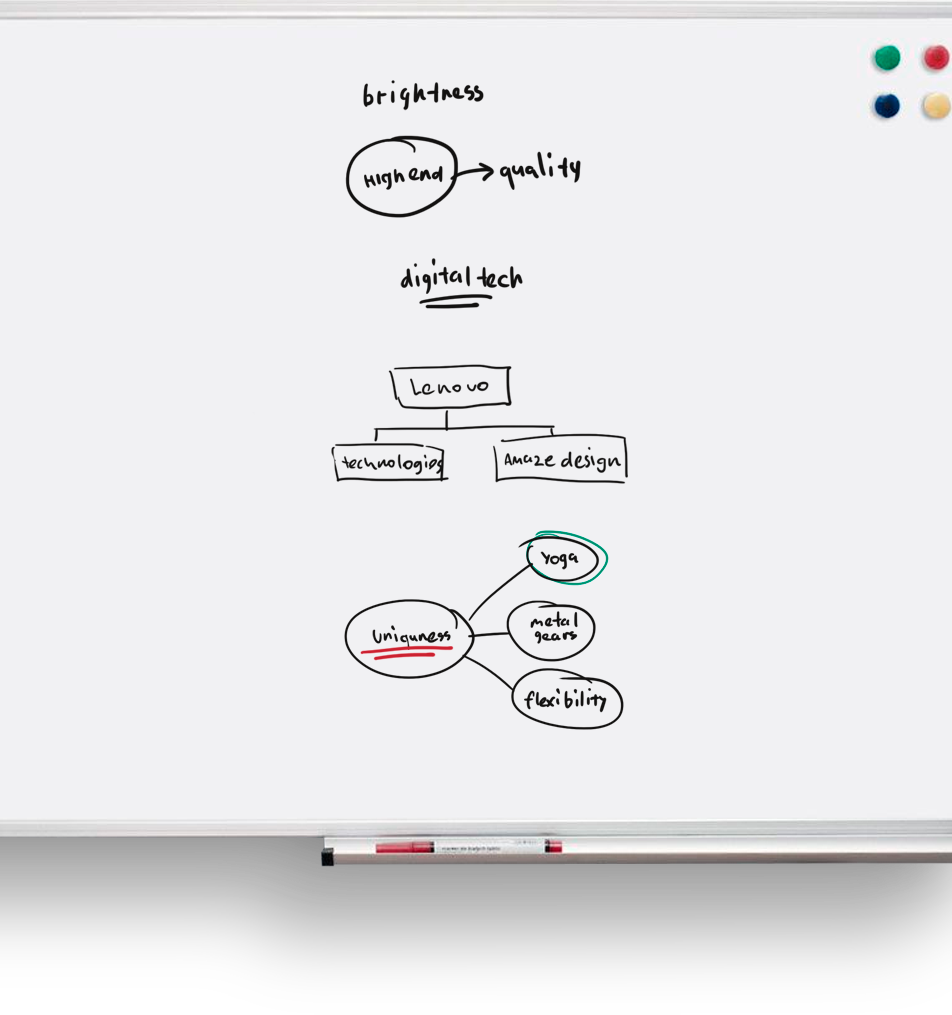 brightness
High end → quality
digital tech
Lenovo
technologies
Amaze design
Yoga
uniquness
metal
gears
flexibility